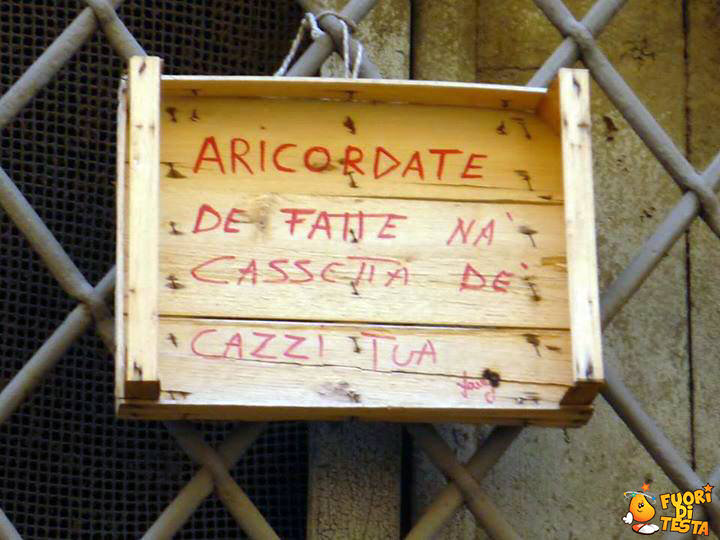 ARICORDATE
DE FATTE NA'
CASSETTA DE'
CAZZI TUA
FUORI
DI
TESTA